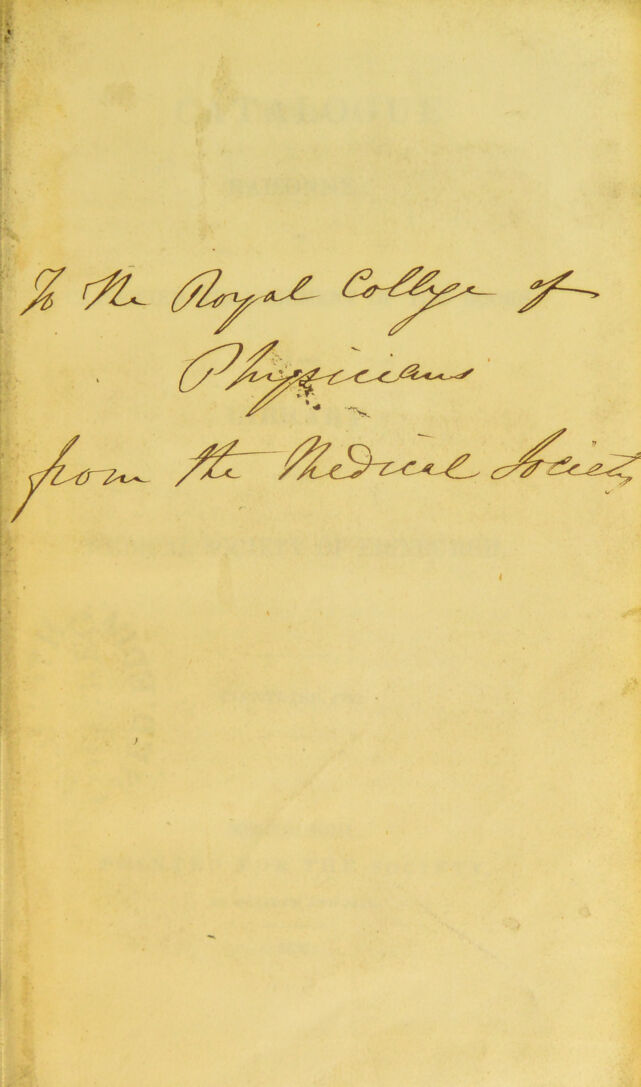 To the Royal College of
Physicians
from the Medical Society